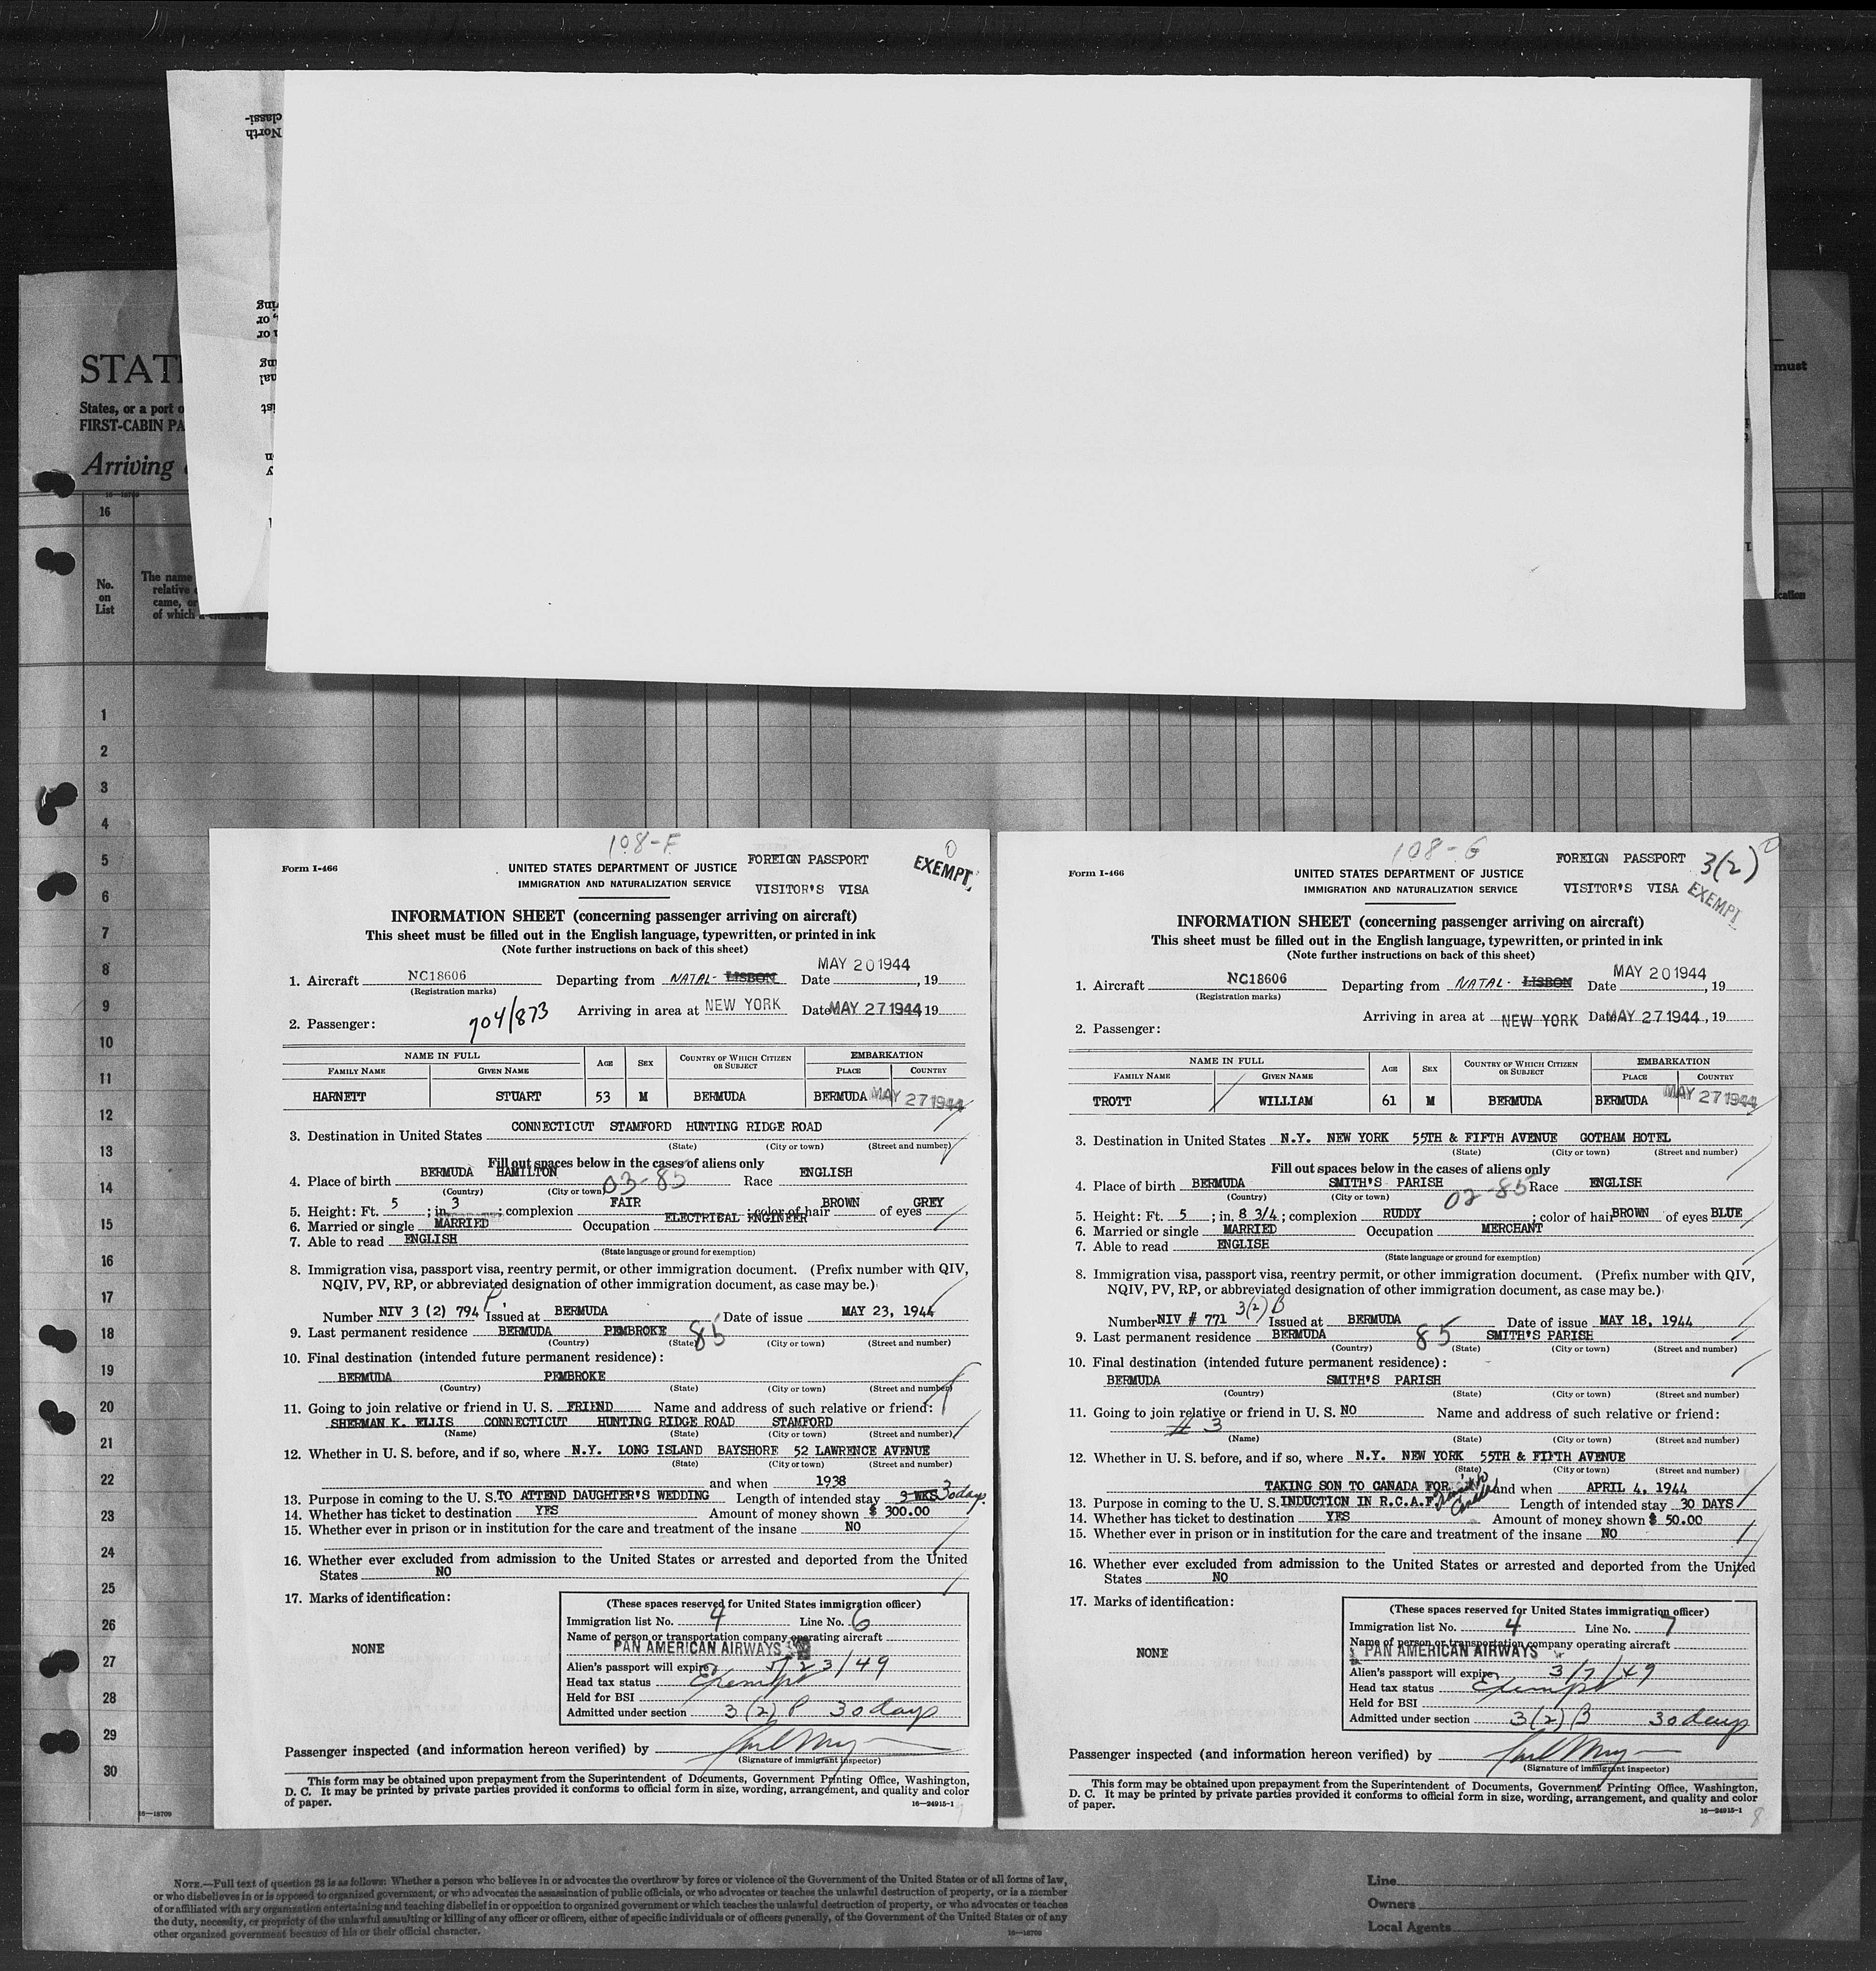 classi-
North
STAT
States, or a port o
FIRST-CABIN PA
Arriving
must
16
No.
on
List
The name
relative
came, or
of which a citizen
cation
1
2
3
4
5
6
7
8
9
10
11
12
13
14
15
16
17
18
19
20
21
22
23
24
25
26
27
28
29
30
16—18709
108-F
0
Form I-466
UNITED STATES DEPARTMENT OF JUSTICE
FOREIGN PASSPORT
EXEMPT
IMMIGRATION AND NATURALIZATION SERVICE
VISITOR'S VISA
INFORMATION SHEET (concerning passenger arriving on aircraft)
This sheet must be filled out in the English language, typewritten, or printed in ink
(Note further instructions on back of this sheet)
1. Aircraft NC18606 Departing from NATAL- LISBON Date MAY 20 1944, 19
(Registration marks)
Arriving in area at NEW YORK Date MAY 27 1944 19
2. Passenger: 704/873
NAME IN FULL AGE SEX COUNTRY OF WHICH CITIZEN OR SUBJECT EMBARKATION
FAMILY NAME GIVEN NAME PLACE COUNTRY
HARNETT STUART 53 M BERMUDA BERMUDA MAY 27 1944
CONNECTICUT STAMFORD HUNTING RIDGE ROAD
3. Destination in United States
(State) (City or town) (Street and number)
Fill out spaces below in the cases of aliens only
4. Place of birth BERMUDA HAMILTON 03-85 Race ENGLISH
(Country) (City or town)
5. Height: Ft. 5 ; in. 3 ; complexion FAIR ; color of hair BROWN of eyes GREY
6. Married or single MARRIED Occupation ELECTRICAL ENGINEER
7. Able to read ENGLISH
(State language or ground for exemption)
8. Immigration visa, passport visa, reentry permit, or other immigration document. (Prefix number with QIV,
NQIV, PV, RP, or abbreviated designation of other immigration document, as case may be.)
Number NIV 3 (2) 794 P Issued at BERMUDA Date of issue MAY 23, 1944
9. Last permanent residence BERMUDA PEMBROKE 85
(Country) (State) (City or town) (Street and number)
10. Final destination (intended future permanent residence):
BERMUDA PEMBROKE
(Country) (State) (City or town) (Street and number)
11. Going to join relative or friend in U. S. FRIEND Name and address of such relative or friend:
SHERMAN K. ELLIS CONNECTICUT HUNTING RIDGE ROAD STAMFORD
(Name) (State) (City or town) (Street and number)
12. Whether in U. S. before, and if so, where N.Y. LONG ISLAND BAYSHORE 52 LAWRENCE AVENUE
(State) (City or town) (Street and number)
and when 1938
13. Purpose in coming to the U. S. TO ATTEND DAUGHTER'S WEDDING Length of intended stay 3 WKS 30 days
14. Whether has ticket to destination YES Amount of money shown $ 300.00
15. Whether ever in prison or in institution for the care and treatment of the insane NO
16. Whether ever excluded from admission to the United States or arrested and deported from the United
States NO
17. Marks of identification:
NONE
(These spaces reserved for United States immigration officer)
Immigration list No. 4 Line No. 6
Name of person or transportation company operating aircraft
PAN AMERICAN AIRWAYS
Alien's passport will expire 5/23/49
Head tax status Exempt
Held for BSI
Admitted under section 3(2) P 30 days
Passenger inspected (and information hereon verified) by
(Signature of immigrant inspector)
This form may be obtained upon prepayment from the Superintendent of Documents, Government Printing Office, Washington,
D. C. It may be printed by private parties provided it conforms to official form in size, wording, arrangement, and quality and color
of paper.
16—24915-1
108-G
Form I-466
UNITED STATES DEPARTMENT OF JUSTICE
FOREIGN PASSPORT 3(2)
IMMIGRATION AND NATURALIZATION SERVICE
VISITOR'S VISA EXEMPT
INFORMATION SHEET (concerning passenger arriving on aircraft)
This sheet must be filled out in the English language, typewritten, or printed in ink
(Note further instructions on back of this sheet)
1. Aircraft NC18606 Departing from NATAL- LISBON Date MAY 20 1944, 19
(Registration marks)
Arriving in area at NEW YORK Date MAY 27 1944, 19
2. Passenger:
NAME IN FULL AGE SEX COUNTRY OF WHICH CITIZEN OR SUBJECT EMBARKATION
FAMILY NAME GIVEN NAME PLACE COUNTRY
TROTT WILLIAM 61 M BERMUDA BERMUDA MAY 27 1944
3. Destination in United States N.Y. NEW YORK 55TH & FIFTH AVENUE GOTHAM HOTEL
(State) (City or town) (Street and number)
Fill out spaces below in the cases of aliens only
4. Place of birth BERMUDA SMITH'S PARISH 02-85 Race ENGLISH
(Country) (City or town)
5. Height: Ft. 5 ; in. 8 3/4 ; complexion RUDDY ; color of hair BROWN of eyes BLUE
6. Married or single MARRIED Occupation MERCHANT
7. Able to read ENGLISH
(State language or ground for exemption)
8. Immigration visa, passport visa, reentry permit, or other immigration document. (Prefix number with QIV,
NQIV, PV, RP, or abbreviated designation of other immigration document, as case may be.)
Number NIV # 771 3(2) B Issued at BERMUDA Date of issue MAY 18, 1944
9. Last permanent residence BERMUDA 85 SMITH'S PARISH
(Country) (State) (City or town) (Street and number)
10. Final destination (intended future permanent residence):
BERMUDA SMITH'S PARISH
(Country) (State) (City or town) (Street and number)
11. Going to join relative or friend in U. S. NO Name and address of such relative or friend:
# 3
(Name) (State) (City or town) (Street and number)
12. Whether in U. S. before, and if so, where N.Y. NEW YORK 55TH & FIFTH AVENUE
(State) (City or town) (Street and number)
TAKING SON TO CANADA FOR and when APRIL 4, 1944
13. Purpose in coming to the U. S. INDUCTION IN R.C.A.F. Length of intended stay 30 DAYS
14. Whether has ticket to destination YES Amount of money shown $ 50.00
15. Whether ever in prison or in institution for the care and treatment of the insane NO
16. Whether ever excluded from admission to the United States or arrested and deported from the United
States NO
17. Marks of identification:
NONE
(These spaces reserved for United States immigration officer)
Immigration list No. 4 Line No. 7
Name of person or transportation company operating aircraft
PAN AMERICAN AIRWAYS
Alien's passport will expire 3/7/49
Head tax status Exempt
Held for BSI
Admitted under section 3(2) B 30 days
Passenger inspected (and information hereon verified) by
(Signature of immigrant inspector)
This form may be obtained upon prepayment from the Superintendent of Documents, Government Printing Office, Washington,
D. C. It may be printed by private parties provided it conforms to official form in size, wording, arrangement, and quality and color
of paper.
16—24915-1
8
NOTE.—Full text of question 28 is as follows: Whether a person who believes in or advocates the overthrow by force or violence of the Government of the United States or of all forms of law,
or who disbelieves in or is opposed to organized government, or who advocates the assassination of public officials, or who advocates or teaches the unlawful destruction of property, or is a member
of or affiliated with any organization entertaining and teaching disbelief in or opposition to organized government or which teaches the unlawful destruction of property, or who advocates or teaches
the duty, necessity, or propriety of the unlawful assaulting or killing of any officer or officers, either of specific individuals or of officers generally, of the Government of the United States or of any
other organized government because of his or their official character.
16—18709
Line
Owners
Local Agents